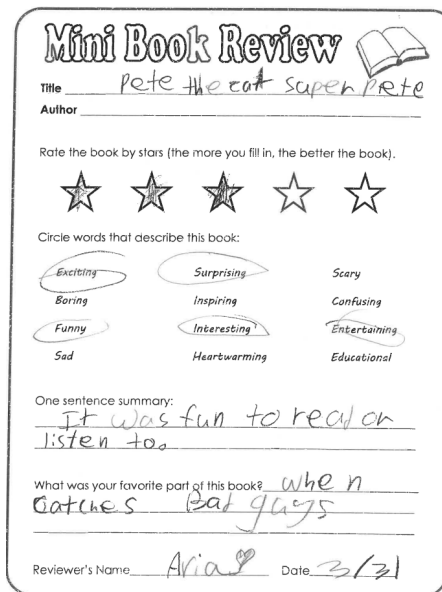 Mini Book Review
Title Pete the cat super Pete
Author
Rate the book by stars (the more you fill in, the better the book).
Circle words that describe this book:
Exciting Surprising Scary
Boring Inspiring Confusing
Funny Interesting Entertaining
Sad Heartwarming Educational
One sentence summary:
It was fun to read or
listen to.
What was your favorite part of this book? when
Catches Bad guys
Reviewer's Name Aria Date 3/31